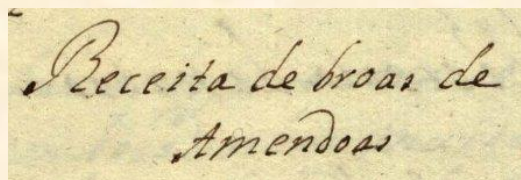 Receita de broas de
Amendoas